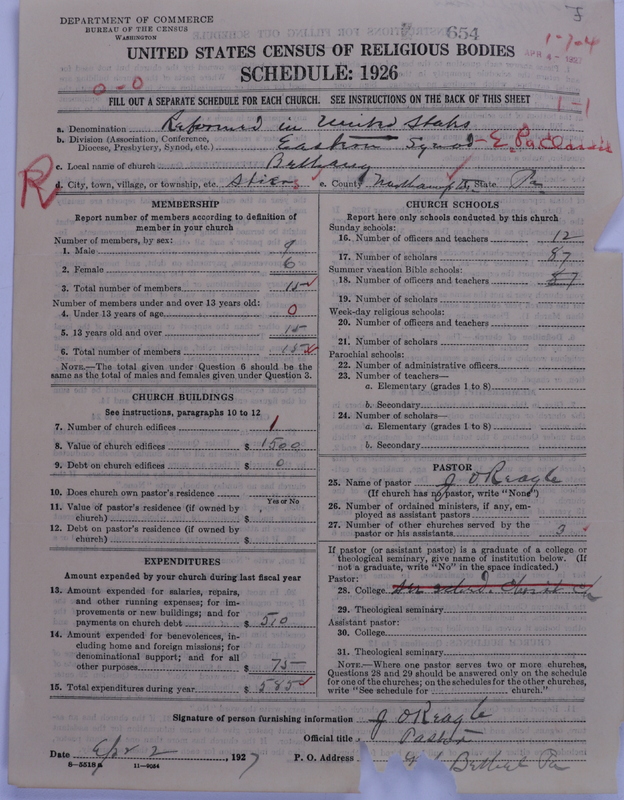 DEPARTMENT OF COMMERCE
BUREAU OF THE CENSUS
WASHINGTON
654
1-7-4
APR 4 - 1927
UNITED STATES CENSUS OF RELIGIOUS BODIES
SCHEDULE: 1926
0-0
1-1
FILL OUT A SEPARATE SCHEDULE FOR EACH CHURCH. SEE INSTRUCTIONS ON THE BACK OF THIS SHEET
a. Denomination Reformed in United States
b. Division (Association, Conference, Diocese, Presbytery, Synod, etc.) Eastern Synod - E. Pa Classis
c. Local name of church Bethany
R
d. City, town, village, or township, etc. e. County State Pa
MEMBERSHIP
Report number of members according to definition of member in your church
Number of members, by sex:
1. Male 9
2. Female 6
3. Total number of members 15
Number of members under and over 13 years old:
4. Under 13 years of age 0
5. 13 years old and over 15
6. Total number of members 15
NOTE.—The total given under Question 6 should be the same as the total of males and females given under Question 3.
CHURCH BUILDINGS
See instructions, paragraphs 10 to 12
7. Number of church edifices 1
8. Value of church edifices $ 1500
9. Debt on church edifices $ 0
10. Does church own pastor's residence
Yes or No
11. Value of pastor's residence (if owned by church) $
12. Debt on pastor's residence (if owned by church) $
EXPENDITURES
Amount expended by your church during last fiscal year
13. Amount expended for salaries, repairs, and other running expenses; for improvements or new buildings; and for payments on church debt $ 510
14. Amount expended for benevolences, including home and foreign missions; for denominational support; and for all other purposes $ 75
15. Total expenditures during year $ 585
CHURCH SCHOOLS
Report here only schools conducted by this church
Sunday schools:
16. Number of officers and teachers 12
17. Number of scholars 87
Summer vacation Bible schools:
18. Number of officers and teachers 87
19. Number of scholars
Week-day religious schools:
20. Number of officers and teachers
21. Number of scholars
Parochial schools:
22. Number of administrative officers
23. Number of teachers—
a. Elementary (grades 1 to 8)
b. Secondary
24. Number of scholars—
a. Elementary (grades 1 to 8)
b. Secondary
PASTOR
25. Name of pastor J O Reagle
(If church has no pastor, write "None")
26. Number of ordained ministers, if any, employed as assistant pastors
27. Number of other churches served by the pastor or his assistants 3
If pastor (or assistant pastor) is a graduate of a college or theological seminary, give name of institution below. (If not a graduate, write "No" in the space indicated.)
Pastor:
28. College
29. Theological seminary
Assistant pastor:
30. College
31. Theological seminary
NOTE.—Where one pastor serves two or more churches, Questions 28 and 29 should be answered only on the schedule for one of the churches; on the schedules for the other churches, write "See schedule for church."
Signature of person furnishing information J O Reagle
Official title Pastor
Date Apr 2, 1927 P. O. Address Bethel Pa
8-5518 a 11-9034